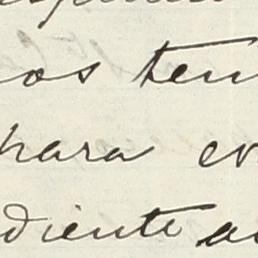 os ten
para ev
diente a